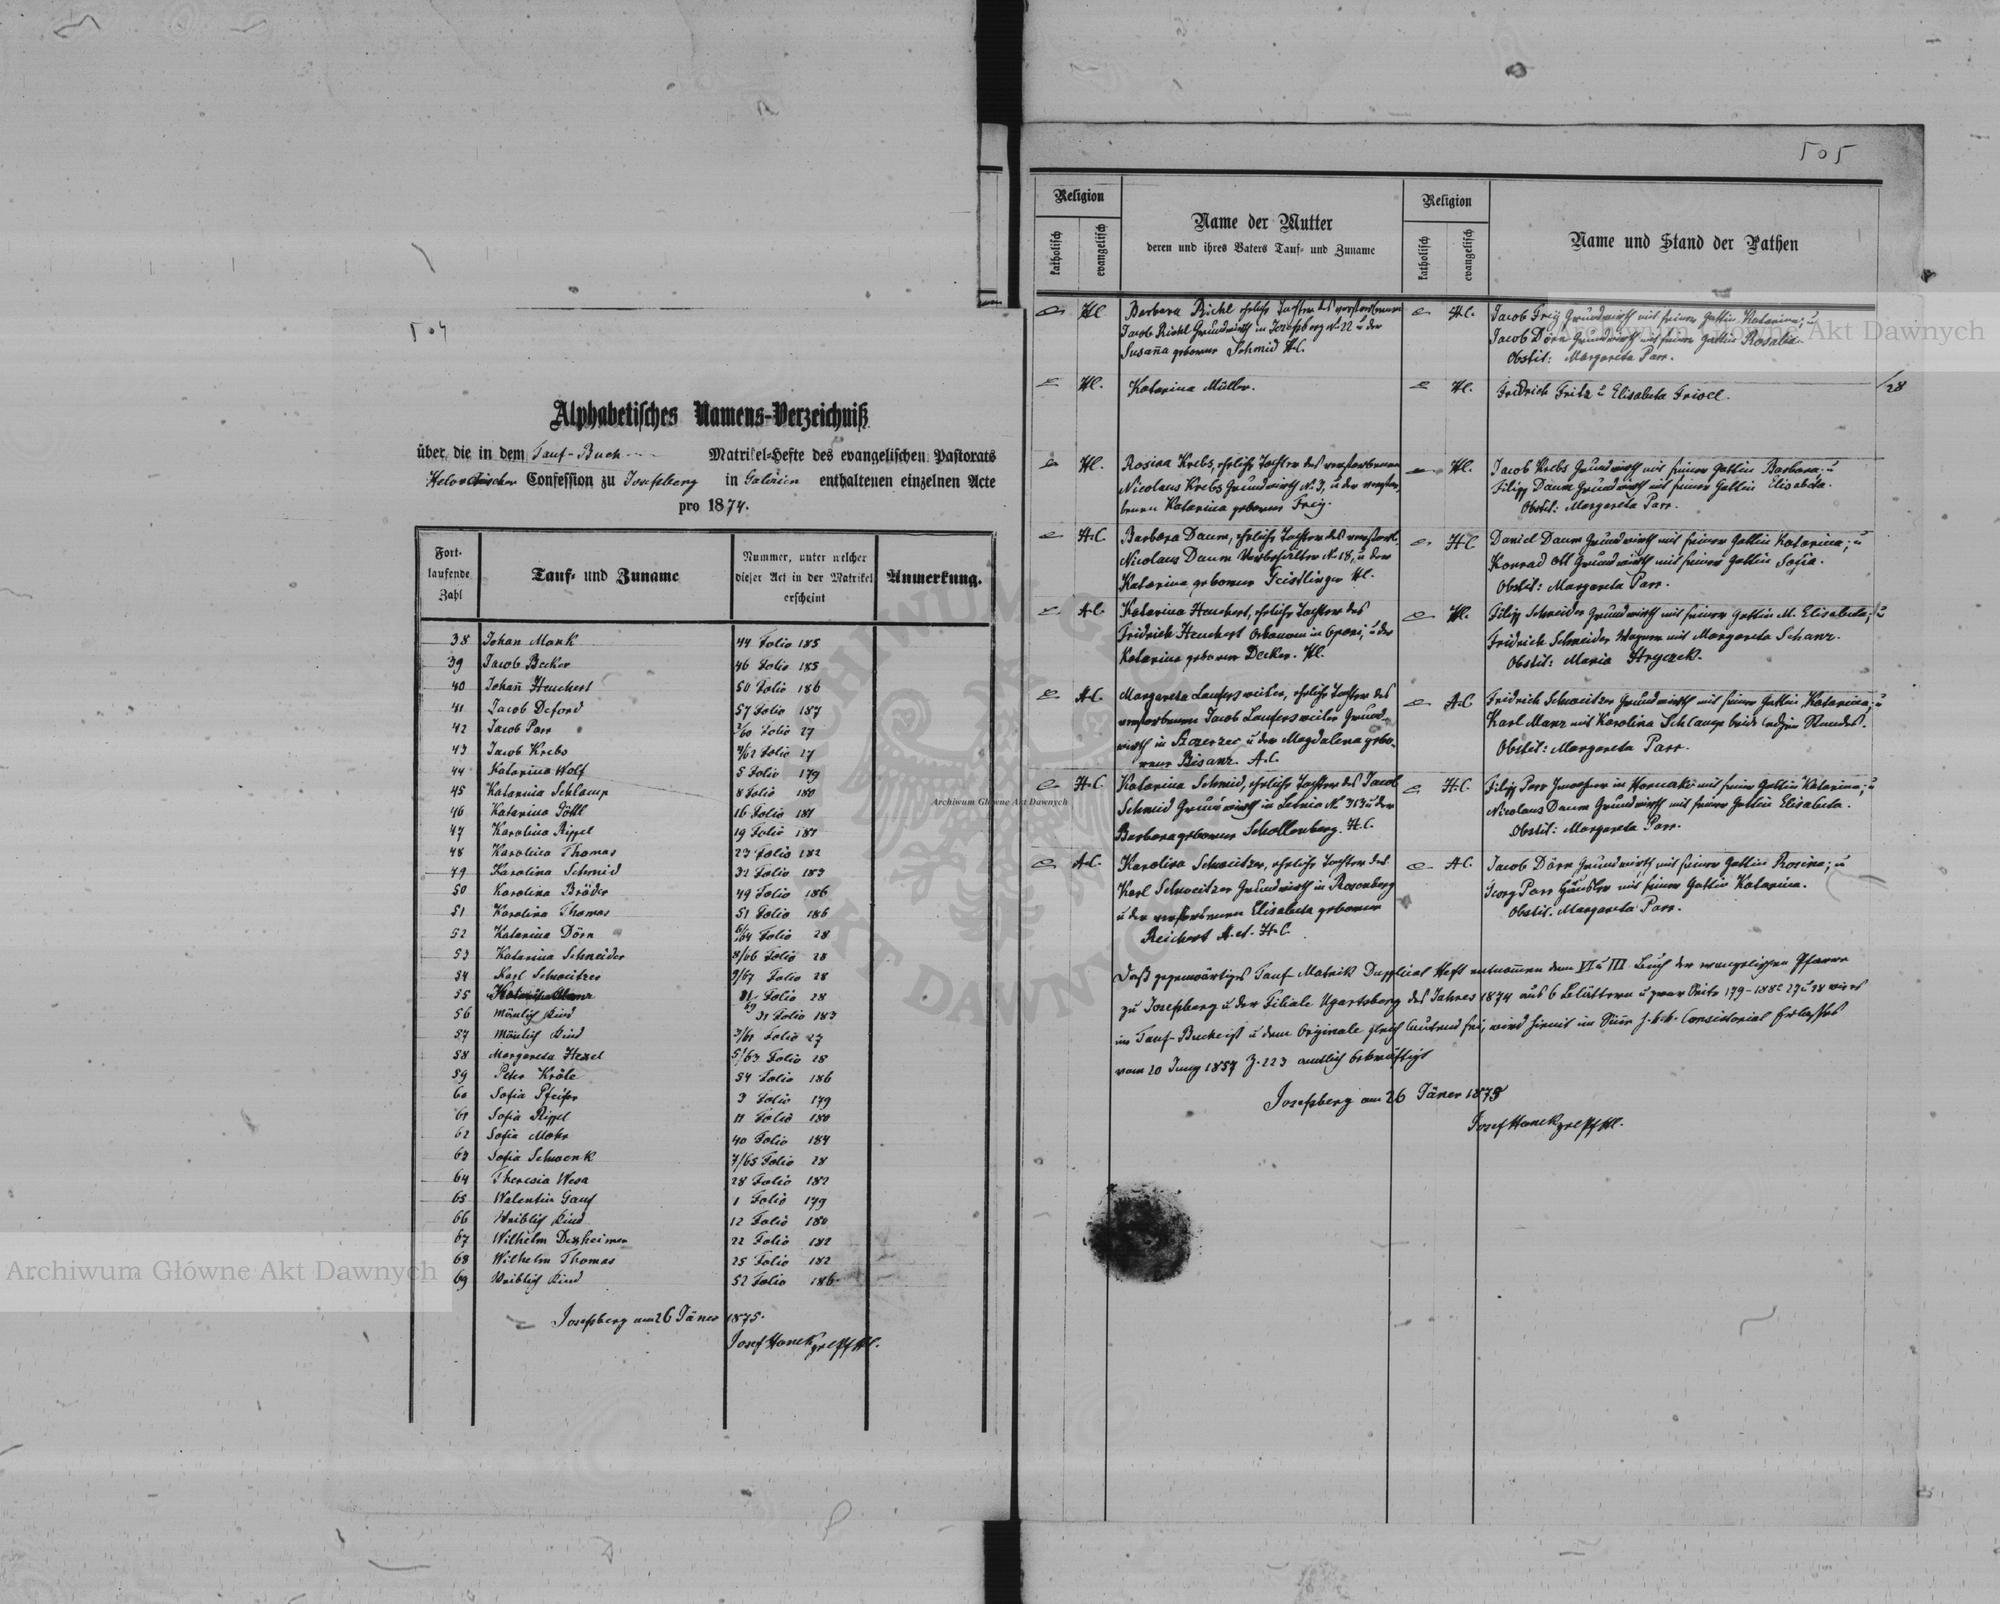 504
Alphabetisches Namens-Verzeichniß
über die in dem Tauf-Buch Matrikel-Hefte des evangelischen Pastorats
Helvetischer Confession zu Josefsberg in Galizien enthaltenen einzelnen Acte
pro 1874.
Fort- laufende Zahl
Tauf- und Zuname
Nummer, unter welcher dieser Act in der Matrikel erscheint
Anmerkung.
38 Johan Mank 44 Folio 185
39 Jacob Becker 46 Folio 185
40 Johañ Heuchert 50 Folio 186
41 Jacob Deford 57 Folio 187
42 Jacob Parr 2/60 Folio 27
43 Jacob Krebs 4/62 Folio 27
44 Katarina Wolf 5 Folio 179
45 Katarina Schlamp 8 Folio 180
46 Katarina 16 Folio 181
47 Karolina Rippel 19 Folio 181
48 Karolina Thomas 23 Folio 182
49 Karolina Schmid 32 Folio 183
50 Karolina Bräder 49 Folio 186
51 Karolina Thomas 51 Folio 186
52 Katarina Dörn 6/64 Folio 28
53 Katarina Schneider 8/66 Folio 28
54 Karl Schweitzer 9/67 Folio 28
55 Folio 28
56 Mänlich Kind 31 Folio 183
57 Mänlich Kind 3/61 Folio 27
58 Margareta Hexel 5/63 Folio 28
59 Peter Kröle 54 Folio 186
60 Sofia Pfeifer 3 Folio 179
61 Sofia Rippel 11 Folio 180
62 Sofia Mohr 40 Folio 184
63 Sofia Schwenk 7/65 Folio 28
64 Theresia Wesa 28 Folio 182
65 Walentin Gauf 1 Folio 179
66 Weiblich Kind 12 Folio 180
67 Wilhelm Dexheimer 22 Folio 182
68 Wilhelm Thomas 25 Folio 182
69 Weiblich Kind 52 Folio 186
Josefsberg am 26 Jäner 1875.
Josef Hanek
505
Religion
katholisch
evangelisch
Name der Mutter
deren und ihres Vaters Tauf- und Zuname
Religion
katholisch
evangelisch
Name und Stand der Pathen
Barbara Richl eheliche Tochter des verstorbenen
Jacob Richl Grundwirth in Josefsberg No 22 u der
Susaña geborene Schmid H.C.
H.C. Jacob Frey Grundwirth mit seiner Gattin Katarina; u
Jacob Dörn Grundwirth mit seiner Gattin Rosalia.
Obstit: Margareta Parr.
Katarina Müller.
Fridrich Fritz u Elisabeta Friocl.
/28
Rosina Krebs, eheliche Tochter des verstorbenen
Nicolaus Krebs Grundwirth No 3, u der verstor-
benen Katarina geborene Frey.
Jacob Krebs Grundwirth mit seiner Gattin Barbara; u
Filipp Daum Grundwirth mit seiner Gattin Elisabeta.
Obstit: Margareta Parr.
H.C. Barbara Daum, eheliche Tochter des verstorb.
Nicolaus Daum Vorbehälter No 18, u der
Katarina geborene Geistlinger
H.C. Daniel Daum Grundwirth mit seiner Gattin Katarina; u
Konrad Ott Grundwirth mit seiner Gattin Sofia.
Obstit: Margareta Parr.
A.C. Katarina Heuchert, eheliche Tochter des
Fridrich Heuchert in ; u der
Katarina geborene Decker.
Filipp Schneider Grundwirth mit seiner Gattin M. Elisabeta; u
Fridrich Schneider Wagner mit Margareta Schanz.
Obstit: Maria Hryczek.
A.C. Margareta Laufersweiler, eheliche Tochter des
verstorbenen Jacob Laufersweiler Grund-
wirth in Szczerzec u der Magdalena gebo-
rene Bisanz. A.C.
A.C. Fridrich Schweitzer Grundwirth mit seiner Gattin Katarina; u
Karl Manz mit Karolina Schlamp beide ledigen Standes.
Obstit: Margareta Parr.
H.C. Katarina Schmid, eheliche Tochter des Jacob
Schmid Grundwirth in Letnia No 313 u der
Barbara geborene Schollenberg. H.C.
H.C. Filipp Parr Inwohner in Horucko mit seiner Gattin Katarina; u
Nicolaus Daum Grundwirth mit seiner Gattin Elisabeta.
Obstit: Margareta Parr.
A.C. Karolina Schweitzer, eheliche Tochter des
Karl Schweitzer Grundwirth in Rosenberg
u der verstorbenen Elisabeta geborene
Reichert A. et. H.C.
A.C. Jacob Dörn Grundwirth mit seiner Gattin Rosina; u
Georg Parr Häusler mit seiner Gattin Katarina.
Obstit. Margareta Parr.
Daß gegenwärtiges Tauf-Matrik Duplicat Heft entnommen dem VI u III Buch der evangelischen Pfarre
zu Josefsberg u der Filiale Ugartsberg des Jahres 1874 aus 6 Blättern u zwar Seite 179-188 27 u 28 wie es
im Tauf-Buche ist u dem Originale gleich lautend sei, wird hiemit im Sinne h. k.k. Consistorial Erlasses
vom 20 Juny 1857 Z. 223 amtlich bekräftigt
Josefsberg am 26 Jäner 1875
Josef Hanek
Archiwum Główne Akt Dawnych
Archiwum Główne Akt Dawnych
Archiwum Główne Akt Dawnych